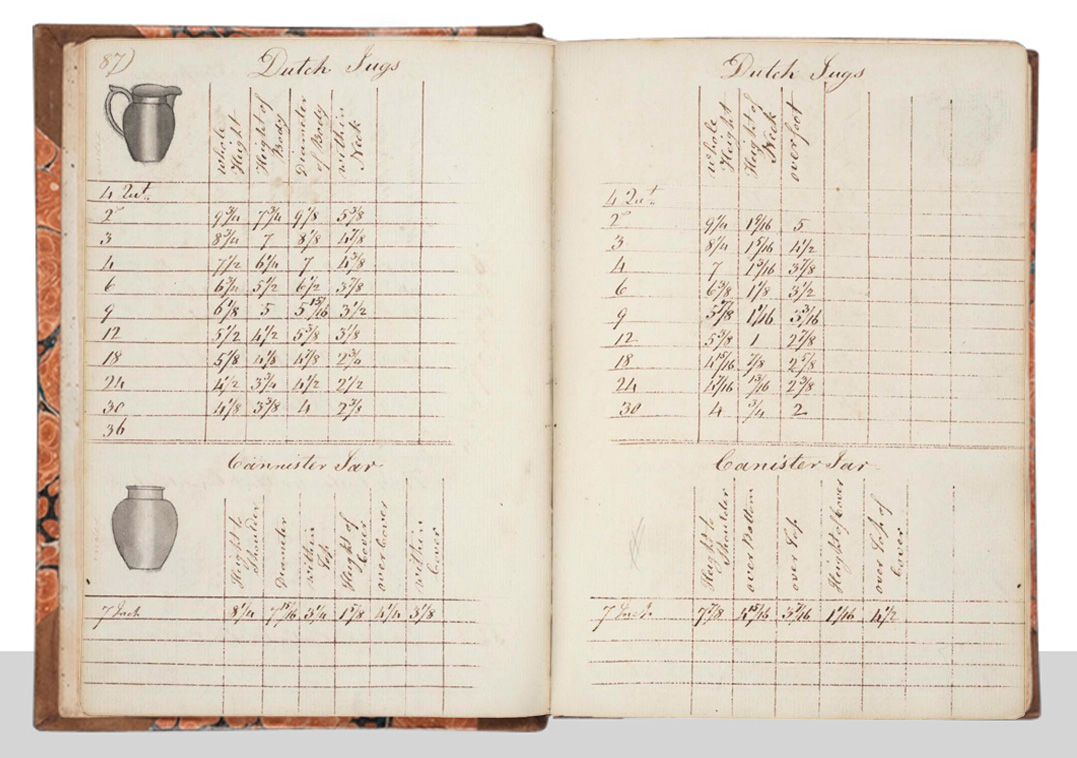 87)
Dutch Jugs
whole Height
Height of Body
Diameter of Body
within Neck
4 Qut.
2 9 3/4 7 3/4 9 1/8 5 3/8
3 8 3/4 7 8 1/8 4 7/8
4 7 1/2 6 1/4 7 4 3/8
6 6 3/4 5 1/2 6 1/2 3 7/8
9 6 1/8 5 5 15/16 3 1/2
12 5 1/2 4 1/2 5 3/8 3 1/8
18 5 1/8 4 1/8 4 7/8 2 3/4
24 4 1/2 3 3/4 4 1/2 2 1/2
30 4 1/8 3 3/8 4 2 3/8
36
Cannister Jar
Height to Shoulder
Diameter
within Top
Height of Cover
over Cover
within Cover
7 Inch 8 1/4 7 15/16 3 1/4 1 7/8 4 1/4 3 1/8
Dutch Jugs
whole Height
Height of Neck
over foot
4 Qut.
2 9 1/4 5
3 8 1/4 1 5/16 4 1/2
4 7 1 3/16 3 7/8
6 6 3/8 1 1/8 3 1/2
9 5 7/8 1 1/16 3 3/16
12 5 3/8 1 2 7/8
18 4 15/16 7/8 2 5/8
24 4 7/16 13/16 2 3/8
30 4 3/4 2
Canister Jar
Height to Shoulder
over Bottom
over Top
Height of Cover
over Top of Cover
7 Inch 7 7/8 4 15/16 3 7/16 1 1/16 4 1/2